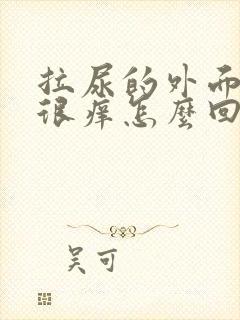 拉尿的外而
很痒怎麼回
吴可